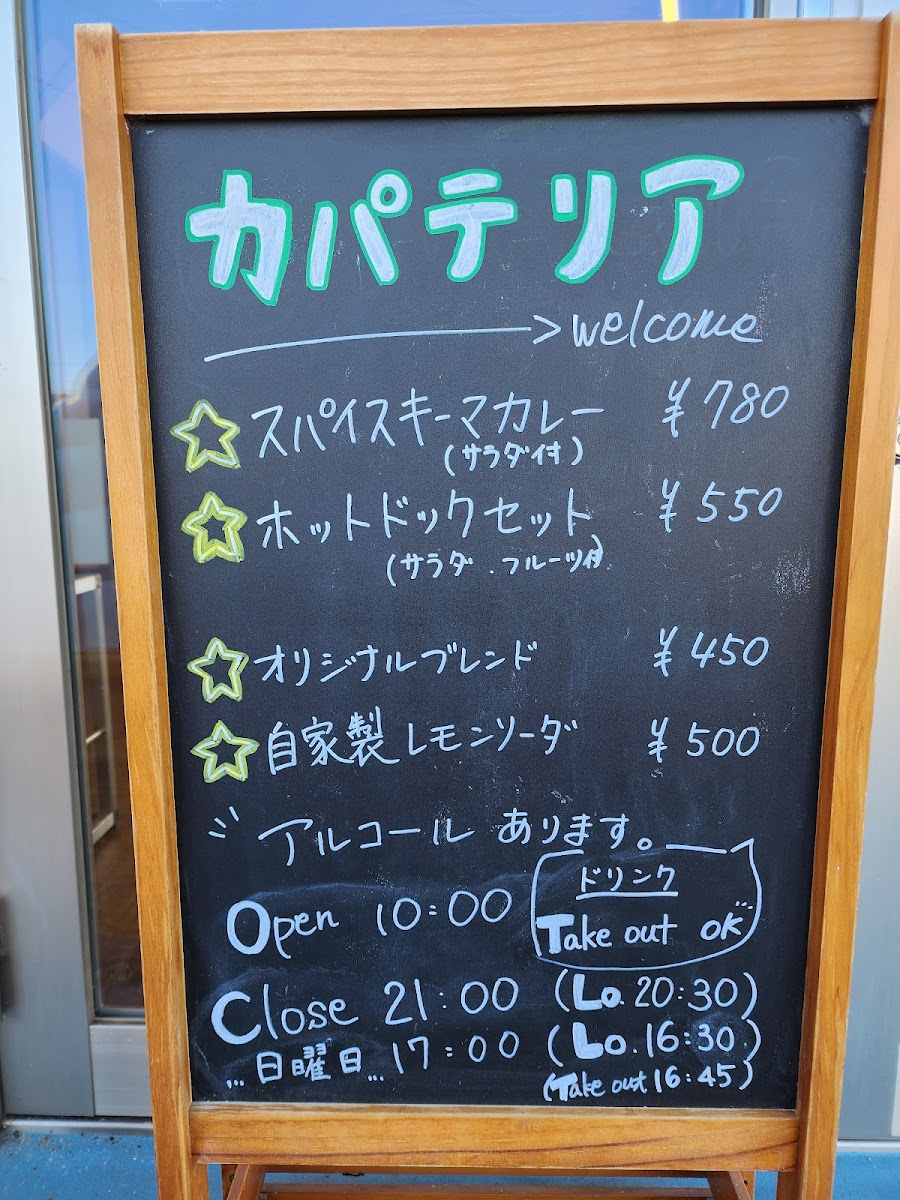 カパテリア
welcome
スパイスキーマカレー ¥780
(サラダ付)
ホットドックセット ¥550
(サラダ.フルーツ付)
オリジナルブレンド ¥450
自家製レモンソーダ ¥500
アルコール あります。
ドリンク
Take out OK
Open 10:00
Close 21:00 (Lo.20:30)
...日曜日...17:00 (Lo.16:30)
(Take out 16:45)